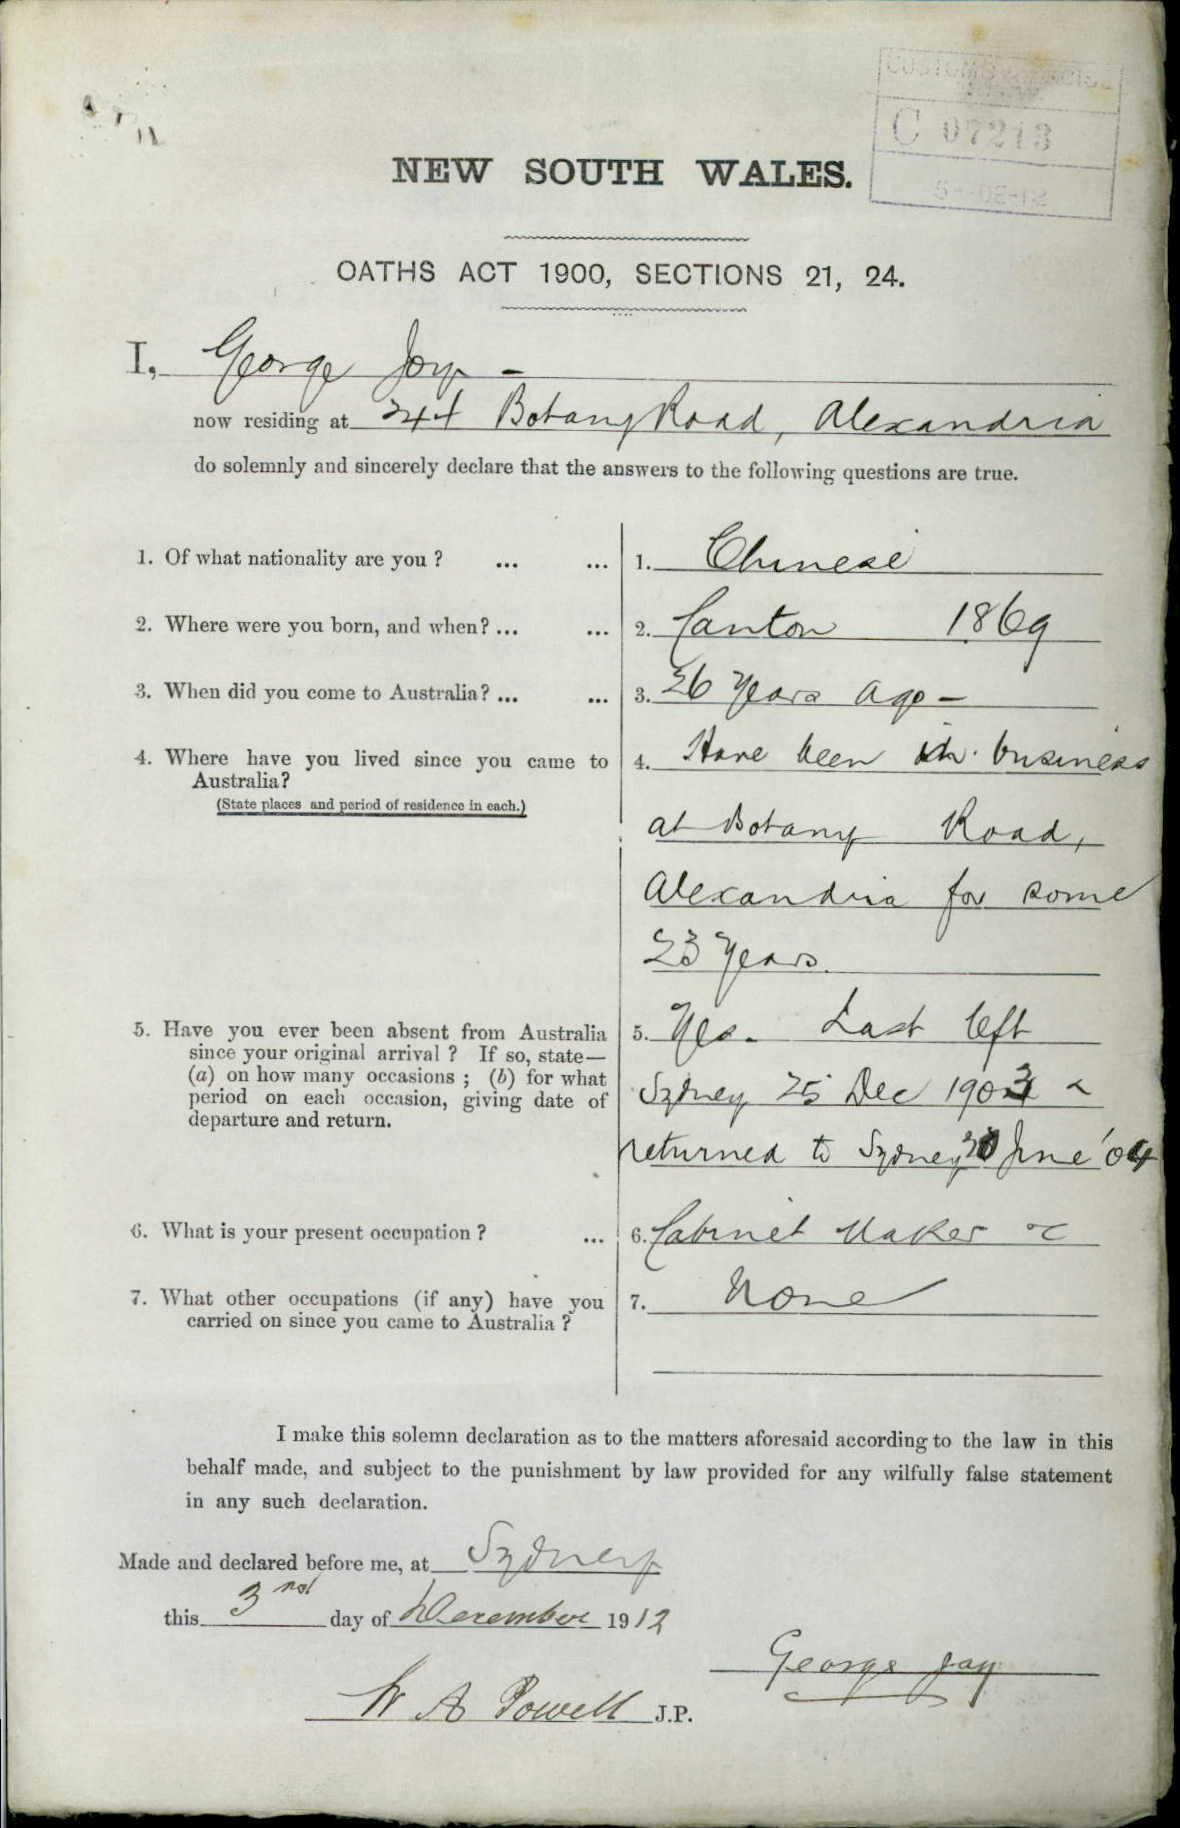 C 07213
NEW SOUTH WALES.
OATHS ACT 1900, SECTIONS 21, 24.
I, George Joy -
now residing at 244 Botany Road, Alexandria
do solemnly and sincerely declare that the answers to the following questions are true.
1. Of what nationality are you ? ... ... 1. Chinese
2. Where were you born, and when? ... ... 2. Canton 1869
3. When did you come to Australia? ... ... 3. 26 Years ago -
4. Where have you lived since you came to 4. Have been in business
Australia?
(State places and period of residence in each.)
at Botany Road,
Alexandria for some
23 Years.
5. Have you ever been absent from Australia 5. Yes. Last left
since your original arrival ? If so, state—
(a) on how many occasions ; (b) for what Sydney 25 Dec 1903 &
period on each occasion, giving date of
departure and return.
returned to Sydney June '04
6. What is your present occupation ? ... 6. Cabinet Maker &c
7. What other occupations (if any) have you 7. None
carried on since you came to Australia ?
I make this solemn declaration as to the matters aforesaid according to the law in this
behalf made, and subject to the punishment by law provided for any wilfully false statement
in any such declaration.
Made and declared before me, at Sydney
this 3rd day of December 1912
George Jay
W A Powell J.P.